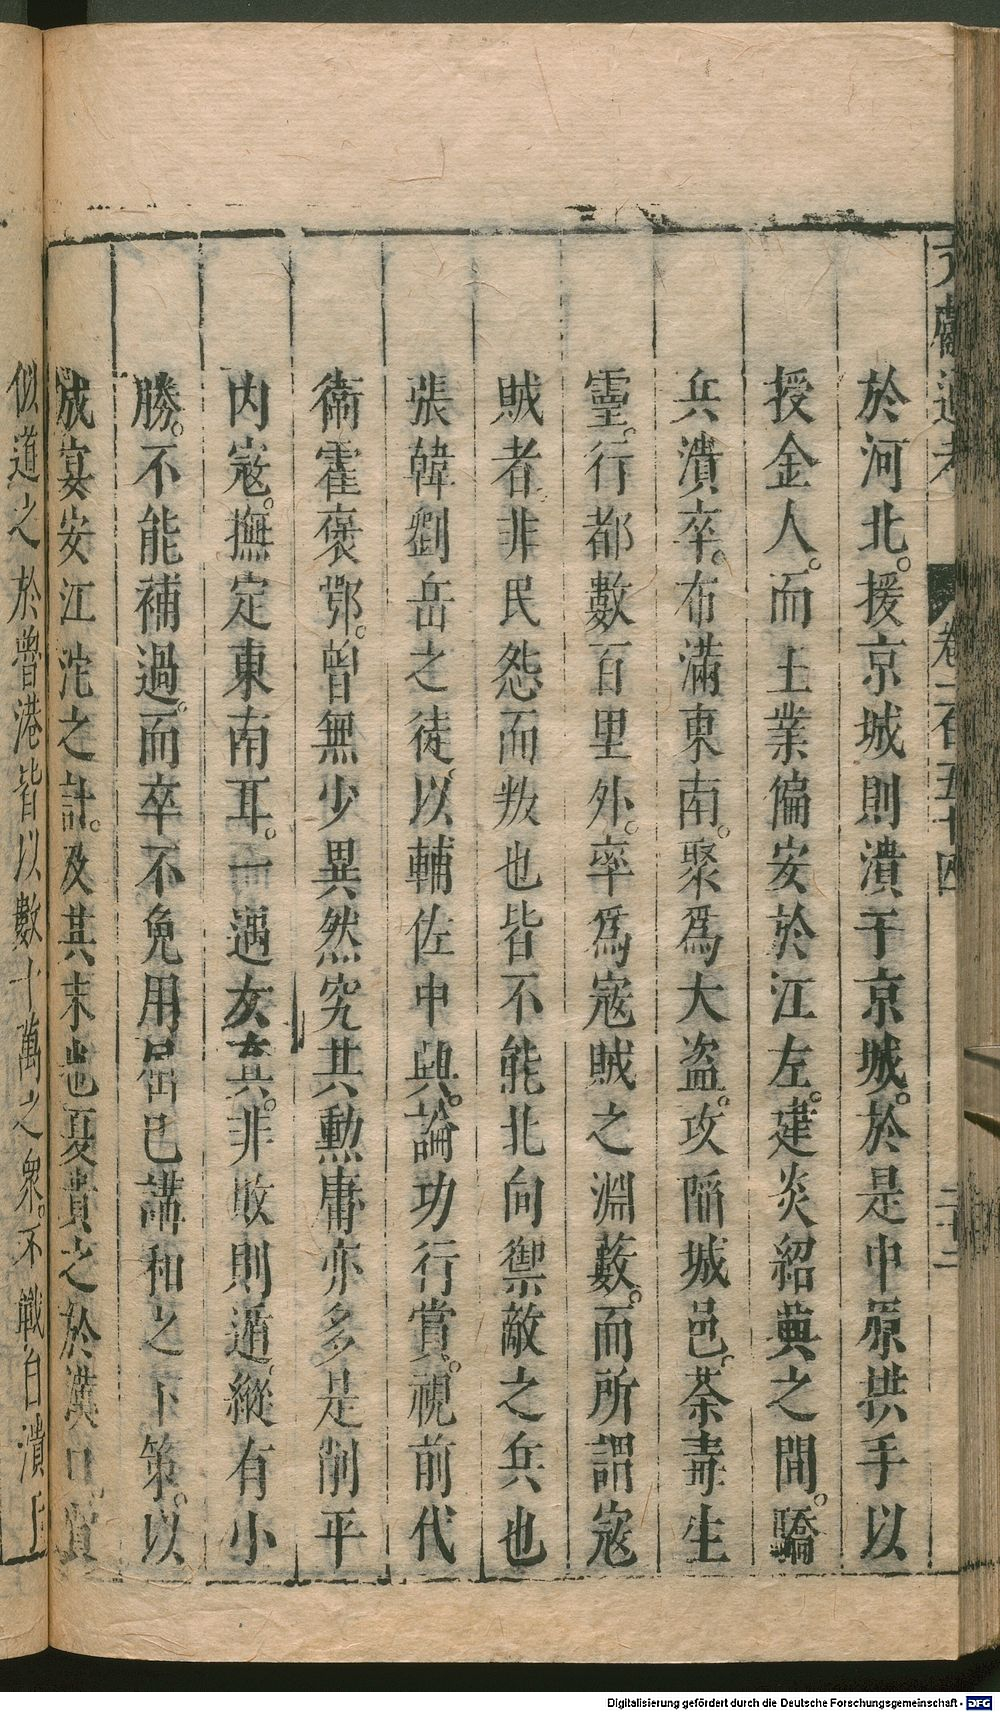 文獻通考 卷一百五十四 二十二
於河北。援京城則潰于京城。於是中原拱手以
授金人。而王業偏安於江左。建炎紹興之間。驕
兵潰卒。布滿東南。聚爲大盜。攻陷城邑。荼毒生
靈。行都數百里外。率爲寇賊之淵藪。而所謂寇
賊者。非民怨而叛也皆不能北向禦敵之兵也
張韓劉岳之徒。以輔佐中興。論功行賞。視前代
衞霍褒鄂。曾無少異然究其勳庸亦多是削平
內寇。撫定東南耳。一遇女眞。非敗則遁。縱有小
勝。不能補過。而卒不免用屈已講和之下策。以
成宴安江沱之計。及其末也夏貴之於漢口。賈
似道之於魯港皆以數十萬之衆。不戰自潰
Digitalisierung gefördert durch die Deutsche Forschungsgemeinschaft - DFG